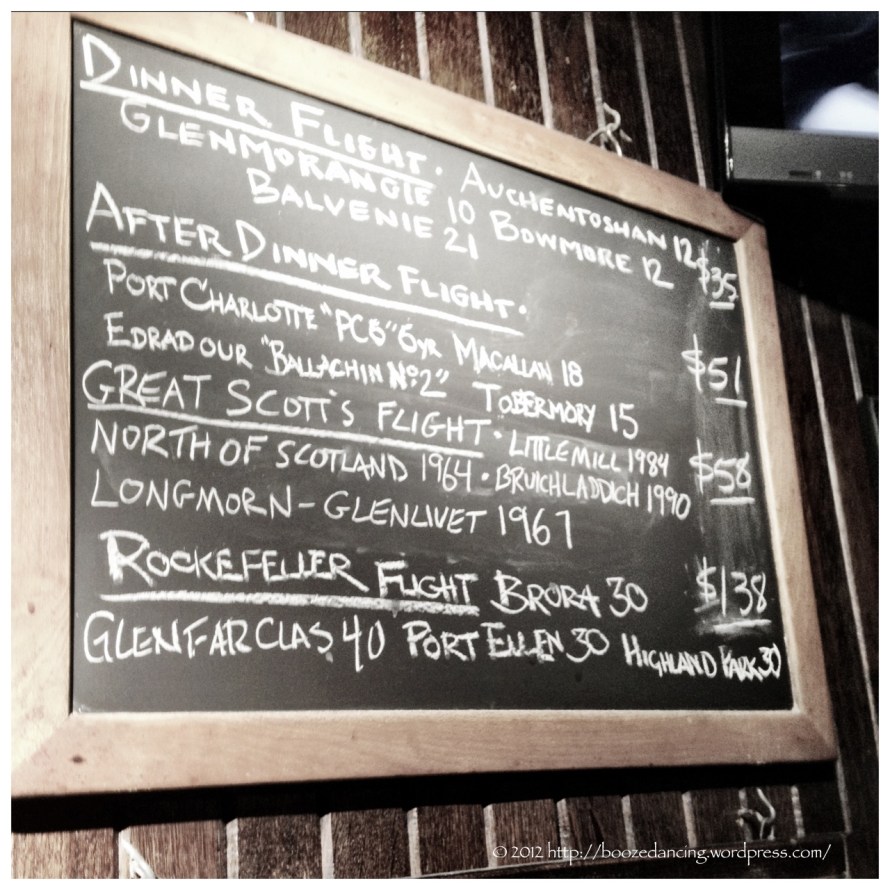 DINNER FLIGHT · AUCHENTOSHAN 12
GLENMORANGIE 10 BOWMORE 12
BALVENIE 21
$35
AFTER DINNER FLIGHT ·
PORT CHARLOTTE "PC6" 6yr MACALLAN 18
$51
EDRADOUR "BALLACHIN Nº2" TOBERMORY 15
GREAT SCOTT'S FLIGHT · LITTLEMILL 1984
$58
NORTH OF SCOTLAND 1964 · BRUICHLADDICH 1990
LONGMORN-GLENLIVET 1967
ROCKEFELLER FLIGHT BRORA 30
$138
GLENFARCLAS 40 PORT ELLEN 30 HIGHLAND PARK 30
© 2012 http://boozedancing.wordpress.com/